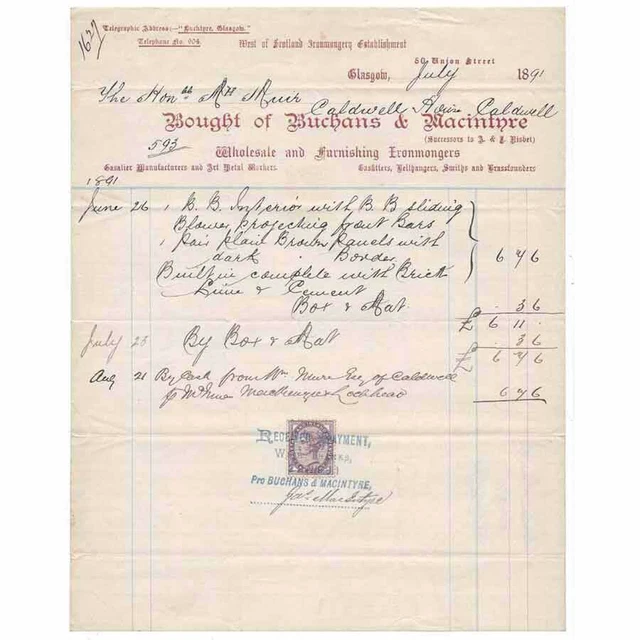 1627
Telegraphic Address:—"Buchtyre, Glasgow."
Telephone No. 904.
West of Scotland Ironmongery Establishment
50 Union Street
Glasgow, July 1891
The Honble Mrs Muir
Caldwell House Caldwell
Bought of Buchans & Macintyre
(Successors to A. & J. Nisbet)
593
Wholesale and Furnishing Ironmongers
Gasalier Manufacturers and Art Metal Workers.
Gasfitters, Bellhangers, Smiths and Brassfounders
1891
June 26 1 B. B. Interior with B. B sliding
Blower, projecting front Bars
1 Pair plain Brown Panels with
dark Border 6 7 6
Built in complete with Brick
Lime & Cement
Box & Mat . 3 6
£ 6 11 .
July 23 By Box & Mat . 3 6
£ 6 7 6
Aug 21 By Cash from Wm Mure Esq of Caldwell
p Mackenzie Lochhead 6 7 6
Received Payment,
Pro Buchans & Macintyre,
Jas. MacIntyre